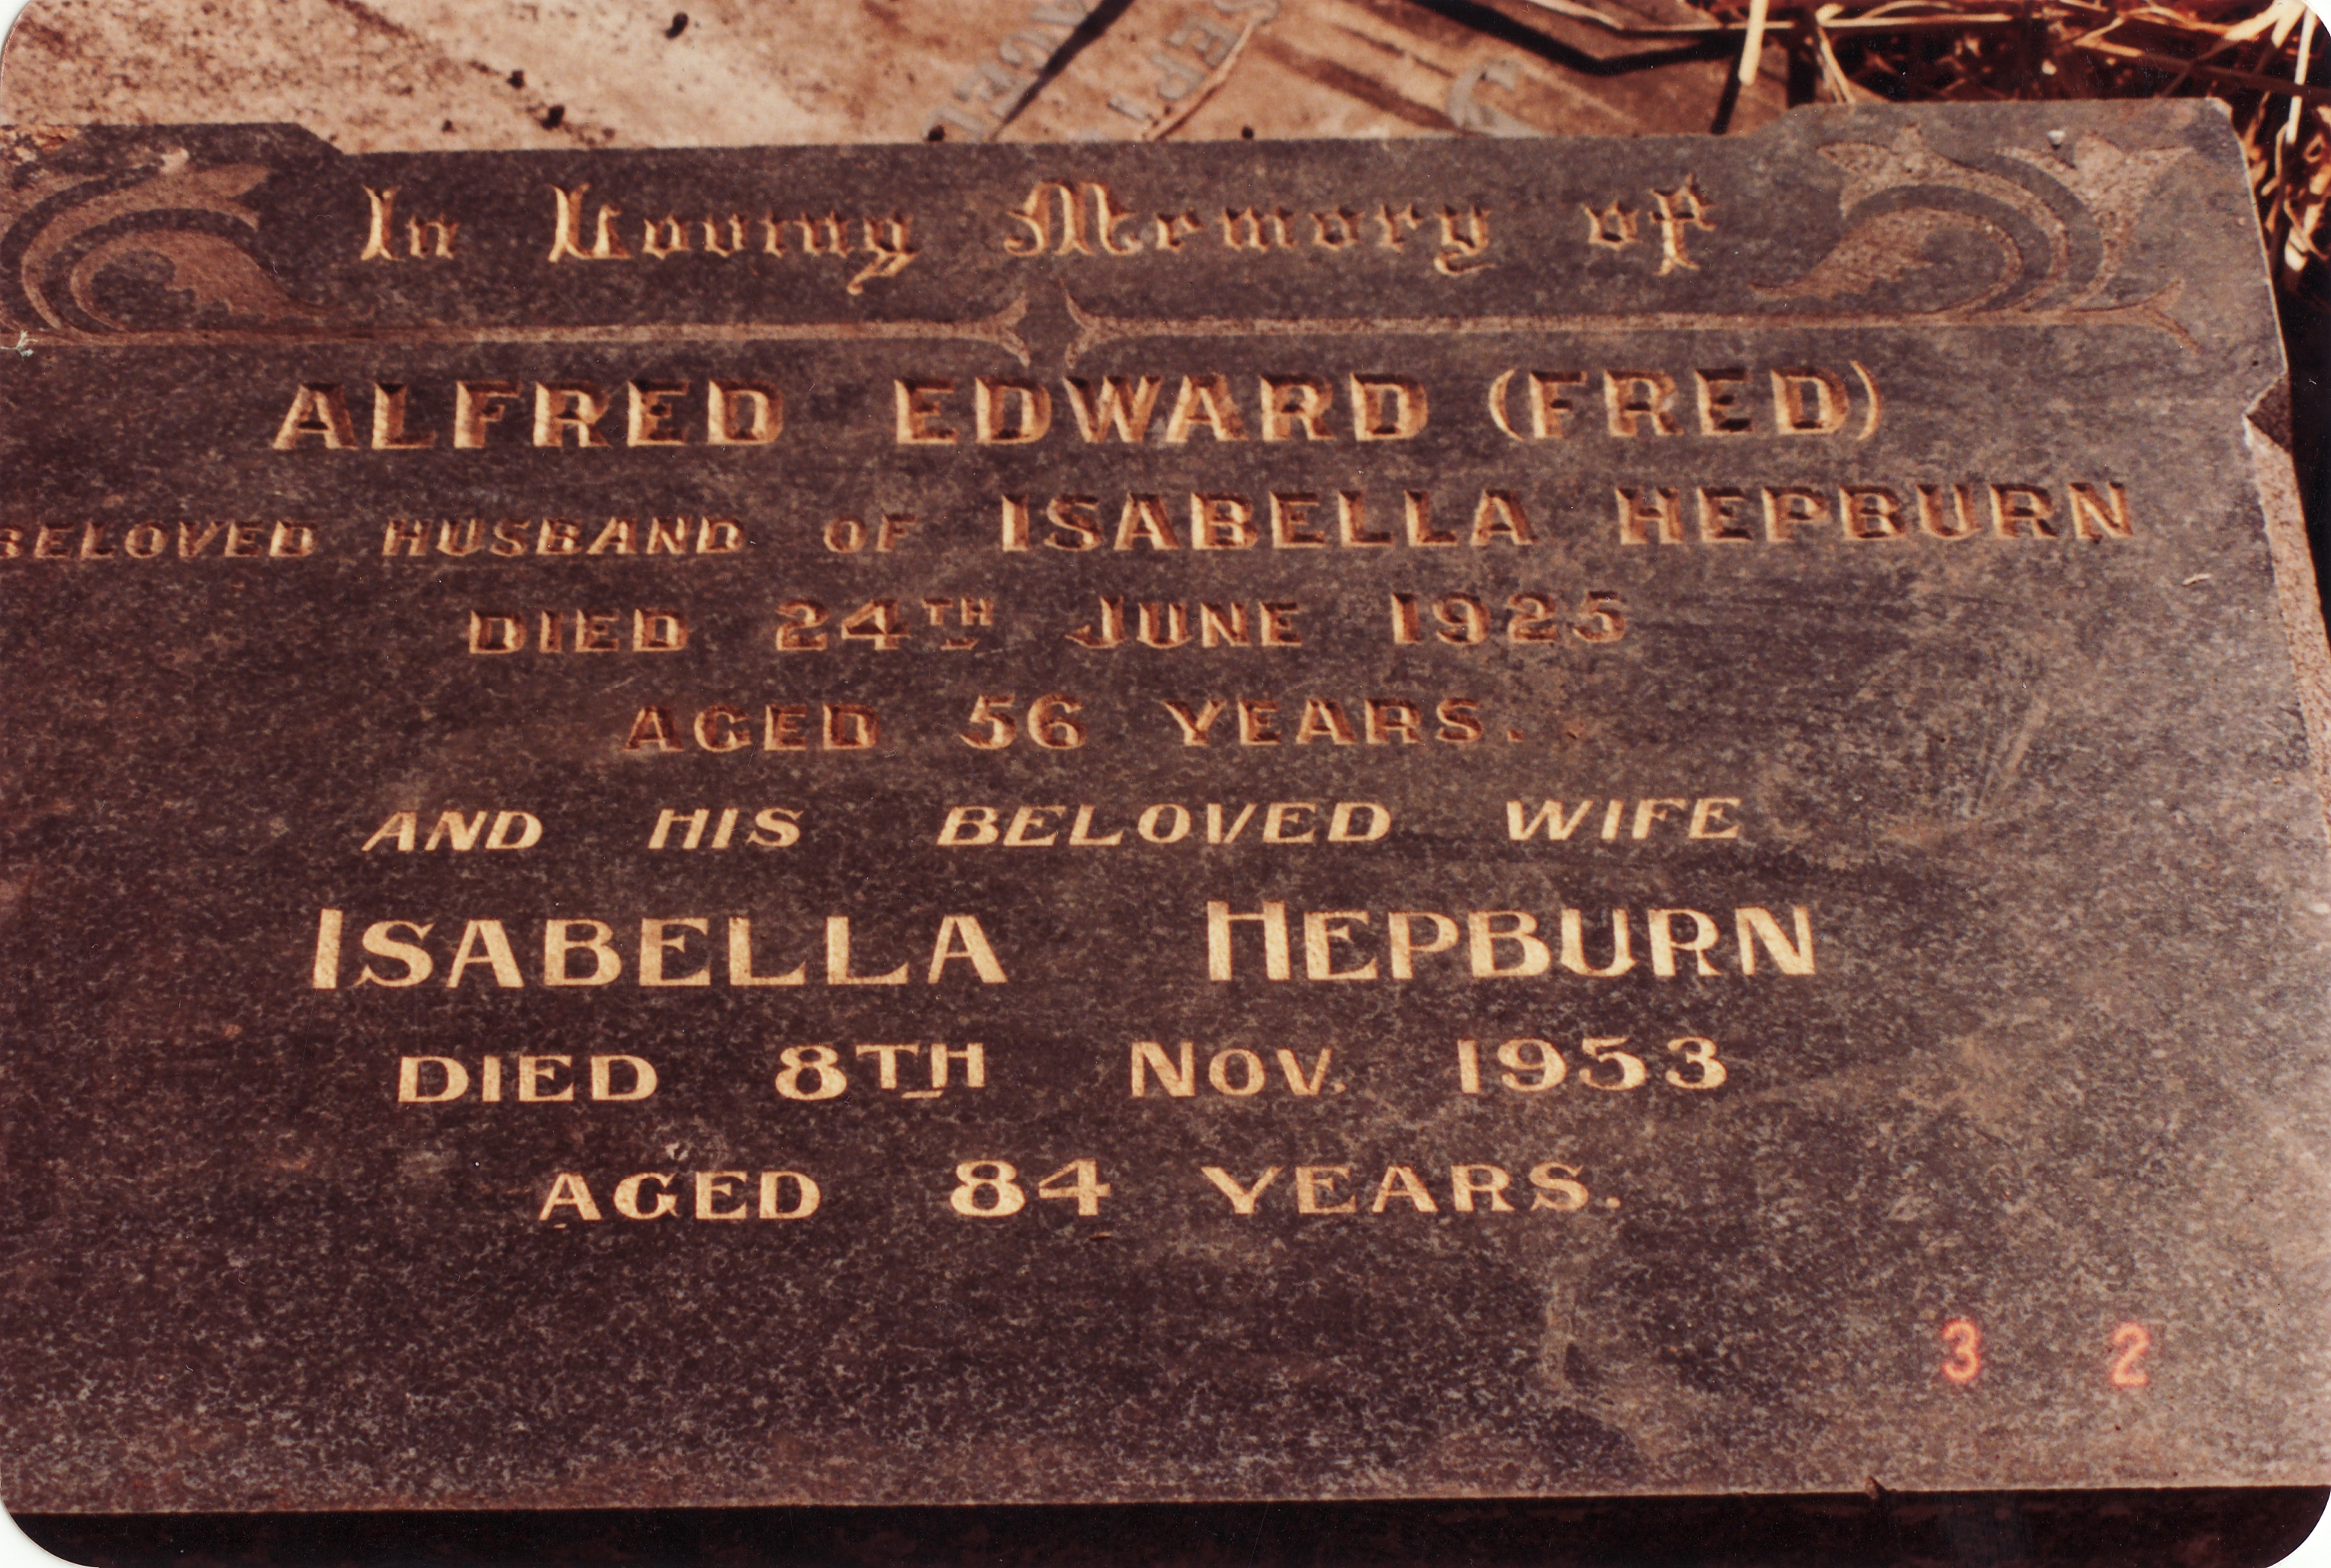 In Loving Memory of
ALFRED EDWARD (FRED)
BELOVED HUSBAND OF ISABELLA HEPBURN
DIED 24TH JUNE 1925
AGED 56 YEARS.
AND HIS BELOVED WIFE
ISABELLA HEPBURN
DIED 8TH NOV. 1953
AGED 84 YEARS.
3 2